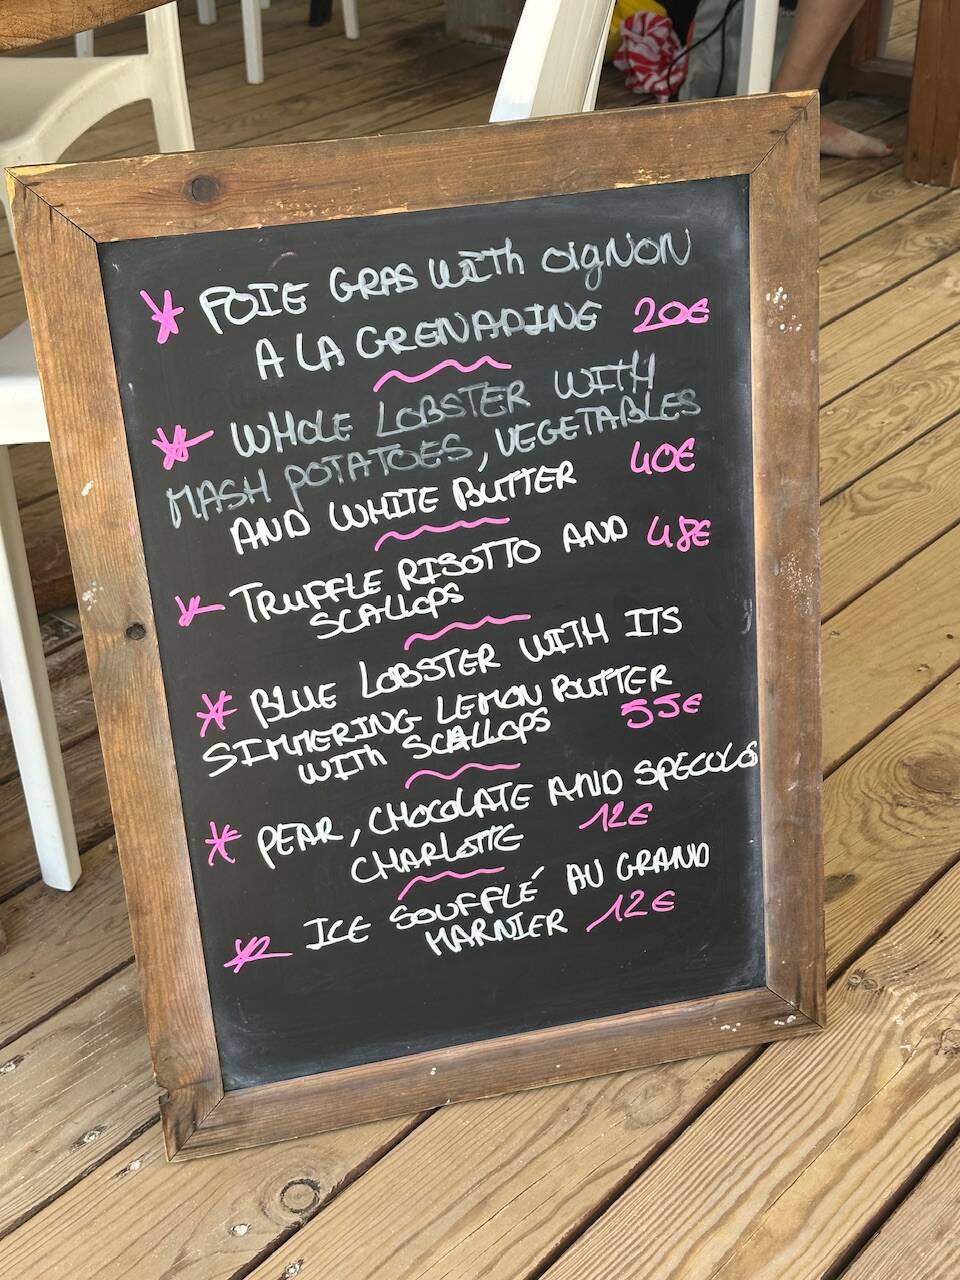 FOIE GRAS WITH OIGNON
A LA GRENADINE 20€
WHOLE LOBSTER WITH
MASH POTATOES, VEGETABLES
AND WHITE BUTTER 40€
TRUFFLE RISOTTO AND 48€
SCALLOPS
BLUE LOBSTER WITH ITS
SIMMERING LEMON BUTTER
WITH SCALLOPS 55€
PEAR, CHOCOLATE AND SPECULOS
CHARLOTTE 12€
ICE SOUFFLÉ AU GRAND
MARNIER 12€